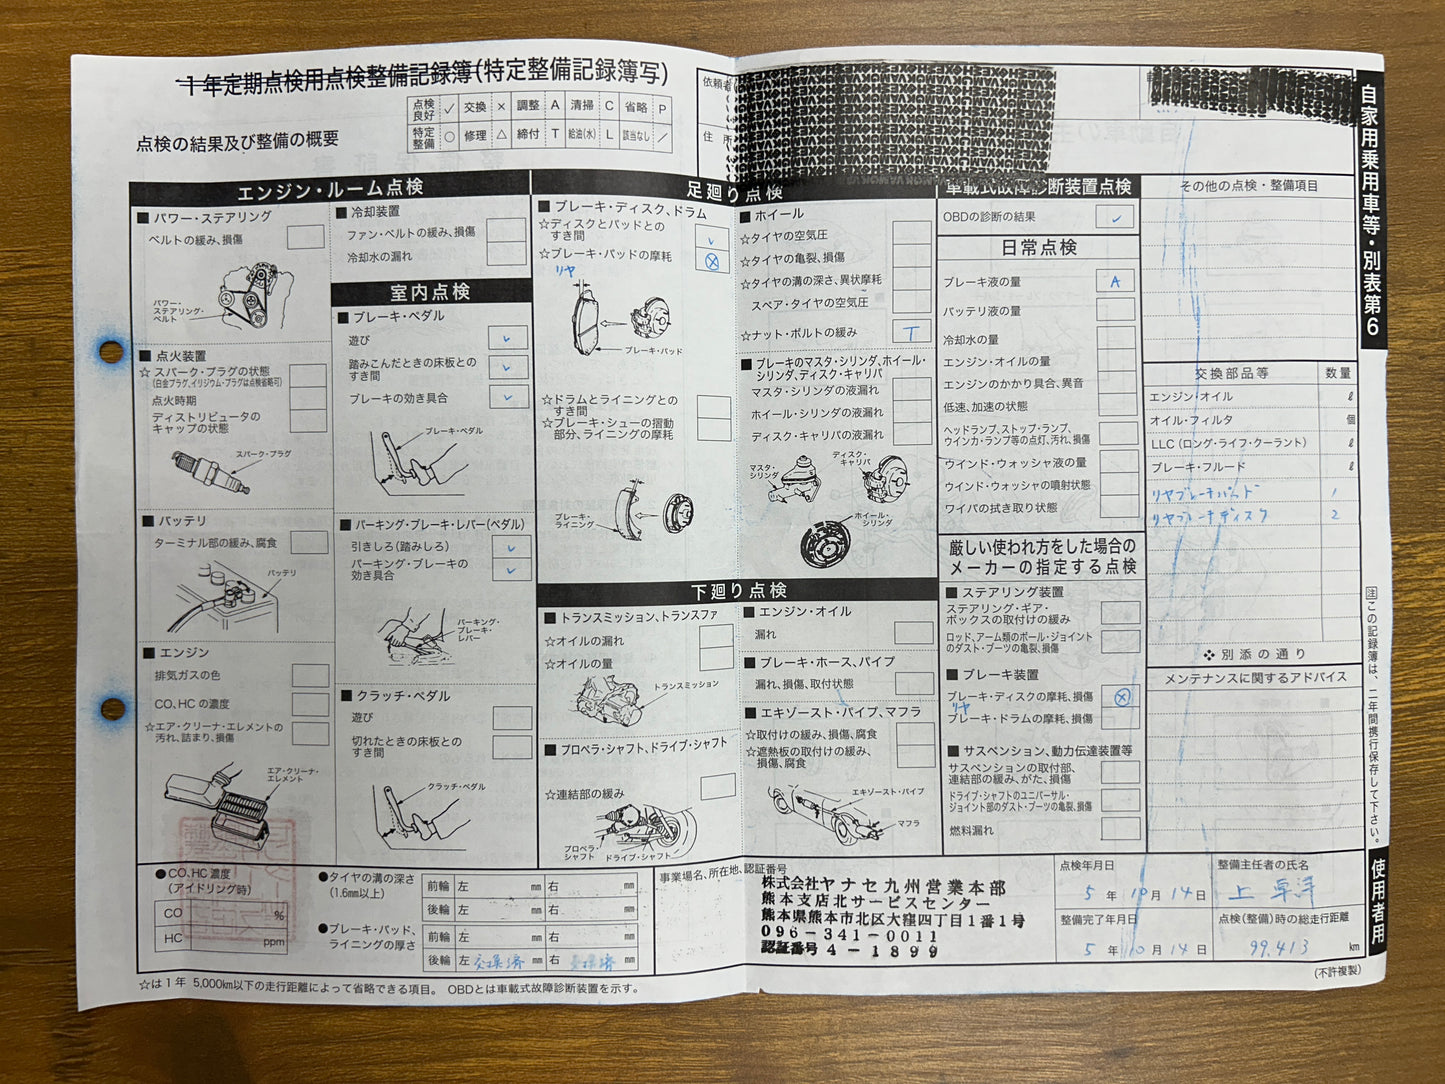 1年定期点検用点検整備記録簿(特定整備記録簿写)
点検の結果及び整備の概要
点検良好 ✓ 交換 × 調整 A 清掃 C 省略 P
特定整備 ○ 修理 △ 締付 T 給油(水) L 該当なし ／
依頼者
住 所
自家用乗用車等・別表第6
エンジン・ルーム点検
■ パワー・ステアリング
ベルトの緩み、損傷
パワー・ステアリング・ベルト
■ 点火装置
☆ スパーク・プラグの状態
(白金プラグ、イリジウム・プラグは点検省略可)
点火時期
ディストリビュータの
キャップの状態
スパーク・プラグ
■ バッテリ
ターミナル部の緩み、腐食
バッテリ
■ エンジン
排気ガスの色
CO、HCの濃度
☆エア・クリーナ・エレメントの
汚れ、詰まり、損傷
エア・クリーナ・エレメント
■ 冷却装置
ファン・ベルトの緩み、損傷
冷却水の漏れ
室内点検
■ ブレーキ・ペダル
遊び ✓
踏みこんだときの床板との
すき間 ✓
ブレーキの効き具合 ✓
ブレーキ・ペダル
■ パーキング・ブレーキ・レバー(ペダル)
引きしろ(踏みしろ) ✓
パーキング・ブレーキの
効き具合 ✓
パーキング・ブレーキ・レバー
■ クラッチ・ペダル
遊び
切れたときの床板との
すき間
クラッチ・ペダル
足廻り点検
■ ブレーキ・ディスク、ドラム
☆ディスクとパッドとの
すき間 ✓
☆ブレーキ・パッドの摩耗 ⊗
リヤ
ブレーキ・パッド
☆ドラムとライニングとの
すき間
☆ブレーキ・シューの摺動
部分、ライニングの摩耗
ブレーキ・ライニング
■ ホイール
☆タイヤの空気圧
☆タイヤの亀裂、損傷
☆タイヤの溝の深さ、異状摩耗
スペア・タイヤの空気圧
☆ナット・ボルトの緩み T
■ ブレーキのマスタ・シリンダ、ホイール・
シリンダ、ディスク・キャリパ
マスタ・シリンダの液漏れ
ホイール・シリンダの液漏れ
ディスク・キャリパの液漏れ
マスタ・シリンダ
ディスク・キャリパ
ホイール・シリンダ
下廻り点検
■ トランスミッション、トランスファ
☆オイルの漏れ
☆オイルの量
トランスミッション
■ プロペラ・シャフト、ドライブ・シャフト
☆連結部の緩み
プロペラ・シャフト
ドライブ・シャフト
■ エンジン・オイル
漏れ
■ ブレーキ・ホース、パイプ
漏れ、損傷、取付状態
■ エキゾースト・パイプ、マフラ
☆取付けの緩み、損傷、腐食
☆遮熱板の取付けの緩み、
損傷、腐食
エキゾースト・パイプ
マフラ
車載式故障診断装置点検
OBDの診断の結果 ✓
日常点検
ブレーキ液の量 A
バッテリ液の量
冷却水の量
エンジン・オイルの量
エンジンのかかり具合、異音
低速、加速の状態
ヘッドランプ、ストップ・ランプ、
ウインカ・ランプ等の点灯、汚れ、損傷
ウインド・ウォッシャ液の量
ウインド・ウォッシャの噴射状態
ワイパの拭き取り状態
厳しい使われ方をした場合の
メーカーの指定する点検
■ ステアリング装置
ステアリング・ギア・
ボックスの取付けの緩み
ロッド、アーム類のボール・ジョイント
のダスト・ブーツの亀裂、損傷
■ ブレーキ装置
ブレーキ・ディスクの摩耗、損傷 ⊗
リヤ
ブレーキ・ドラムの摩耗、損傷
■ サスペンション、動力伝達装置等
サスペンションの取付部、
連結部の緩み、がた、損傷
ドライブ・シャフトのユニバーサル・
ジョイント部のダスト・ブーツの亀裂、損傷
燃料漏れ
その他の点検・整備項目
交換部品等 数量
エンジン・オイル ℓ
オイル・フィルタ 個
LLC(ロング・ライフ・クーラント) ℓ
ブレーキ・フルード ℓ
リヤブレーキパッド 1
リヤブレーキディスク 2
❖ 別添の通り
メンテナンスに関するアドバイス
注 この記録簿は、二年間携行保存して下さい。
使用者用
●CO、HC濃度
(アイドリング時)
CO %
HC ppm
●タイヤの溝の深さ
(1.6mm以上)
前輪 左 mm 右 mm
後輪 左 mm 右 mm
●ブレーキ・パッド、
ライニングの厚さ
前輪 左 mm 右 mm
後輪 左 交換済 mm 右 交換済 mm
事業場名、所在地、認証番号
株式会社ヤナセ九州営業本部
熊本支店北サービスセンター
熊本県熊本市北区大窪四丁目1番1号
096-341-0011
認証番号 4-1899
点検年月日
5 年 10 月 14 日
整備主任者の氏名
上
整備完了年月日
5 年 10 月 14 日
点検(整備)時の総走行距離
99,413 km
(不許複製)
☆は1年 5,000km以下の走行距離によって省略できる項目。 OBDとは車載式故障診断装置を示す。